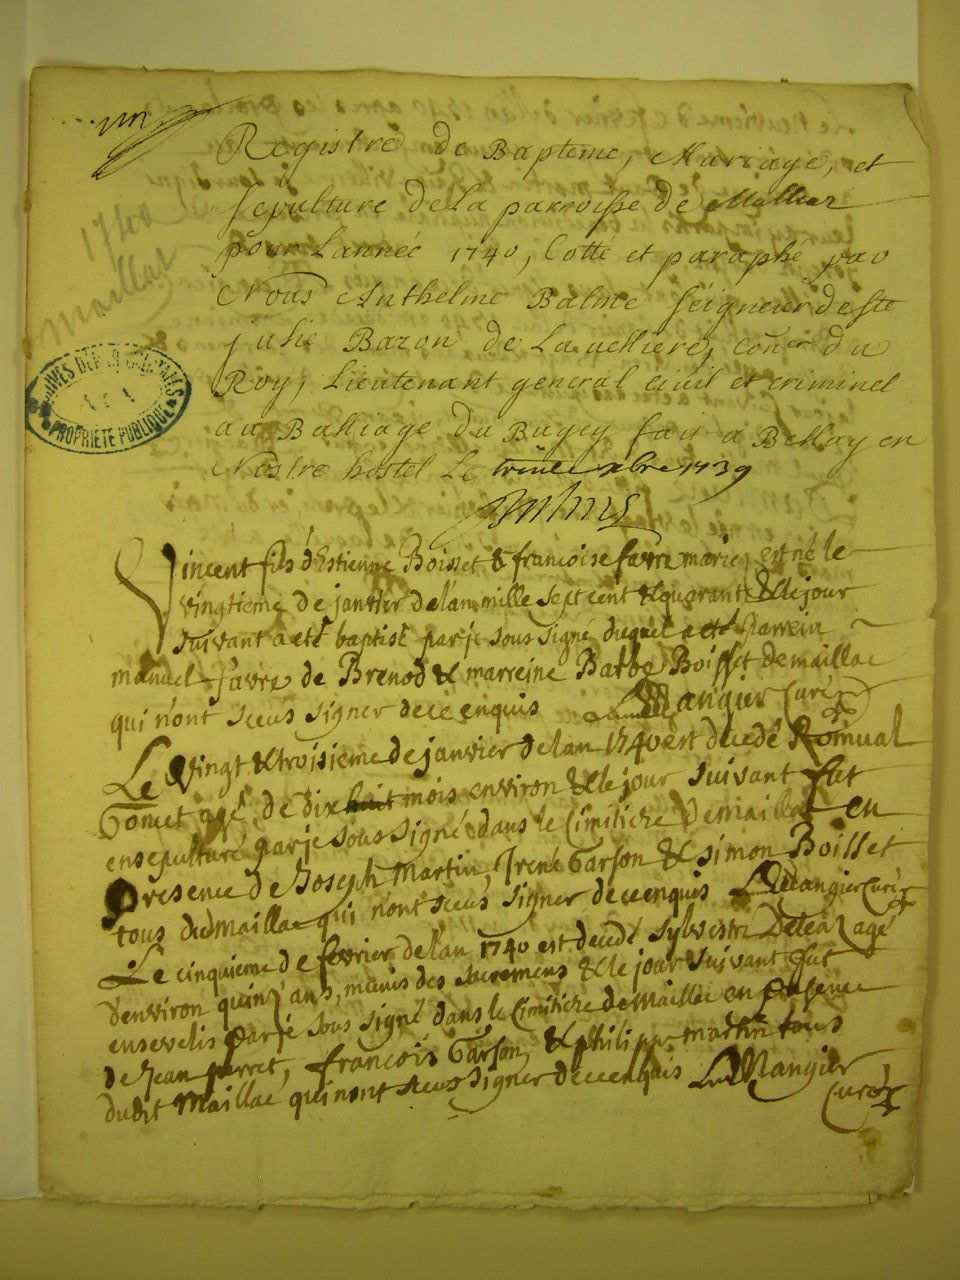 un
Registre de Bapteme, Mariage, et
sepulture de La parroisse de Malliaz
pour Lanneé 1740, Cotté et paraphé par
Nous Anthelme Balme seigneur de ste
julie Baron de La velliere, con.er du
Roy, Lieutenant general civil et criminel
au Balliage du Bugey fait a Bellay en
Nostre hostel Le trente xbre 1739
1740
maillat
PROPRIÉTÉ PUBLIQUE
Vincent fils d'Estienne Boisset & francoise favre mariez est né le
vingtieme de janvier de lan mille sept cent & quarante & le jour
suivant a eté baptisé par je sous signé duquel a eté parrein
manuel favre de Brenod & marreine Barbe Boisset de maillac
qui n'ont sceus signer de ce enquis Mangier Curé
Le vingt & troisieme de janvier de lan 1740 est decedé Romual
Gomet agé de dix huit mois environ & le jour suivant fut
ensepulturé par je sous signé dans le Cimitiere de maillac en
presence de Joseph Martin, Irené Garson & simon Boisset
tous dud maillac qui n'ont sceus signer de ce enquis Mangier Curé
Le cinquieme de fevrier de lan 1740 est decedé sylvestre agé
d'environ quinz ans, munis des sacremens & le jour suivant fut
ensevelis par je sous signé dans le Cimitiere de Maillac en presence
de Jean perret, francois Garson, & philippe martin tous
dudit Maillac qui nont sceus signer de ce enquis Mangier
Curé